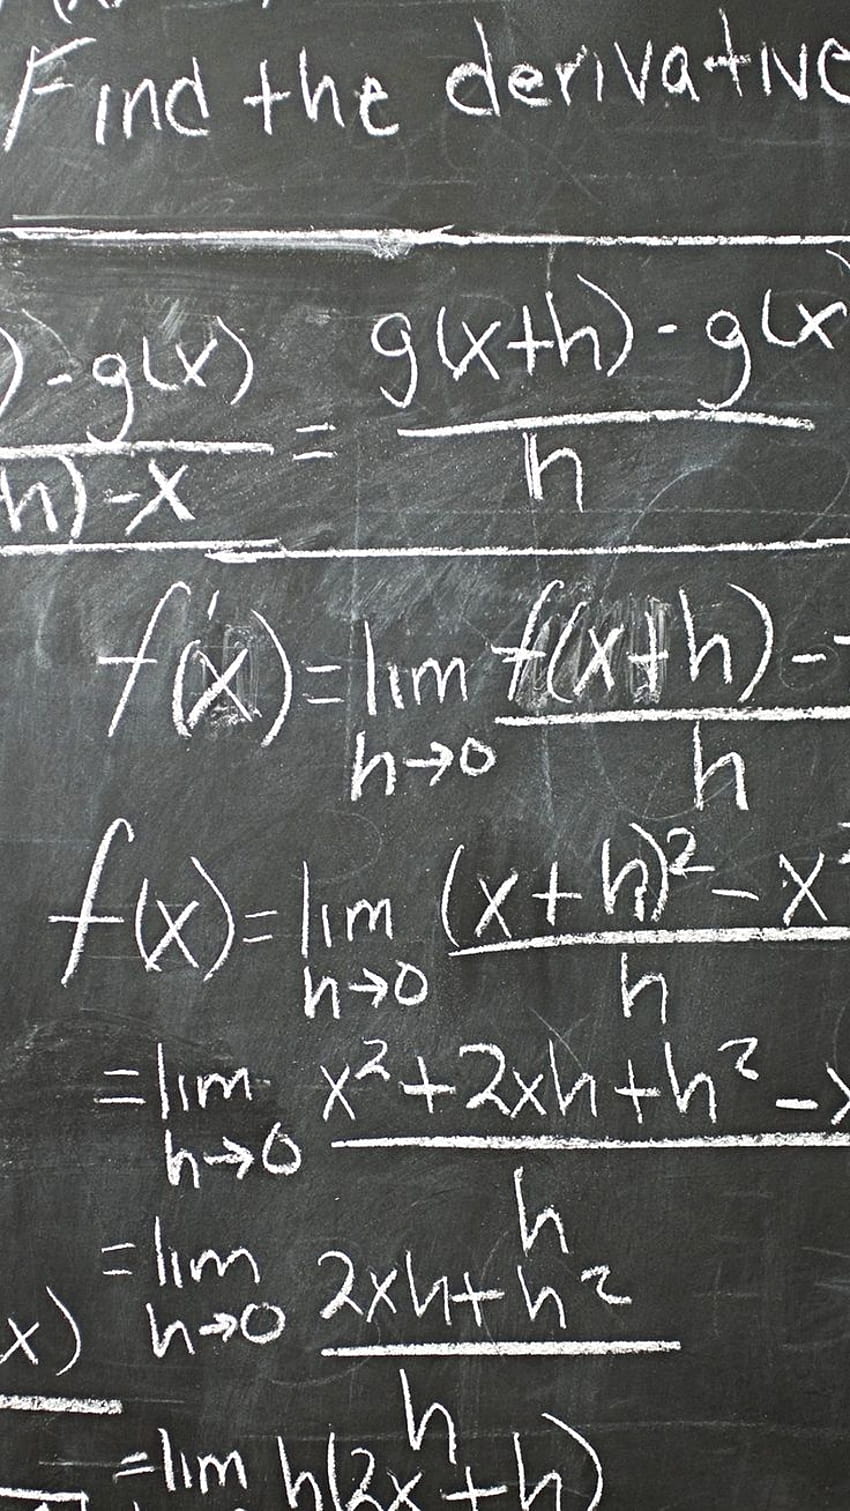 Find the derivative
) - g(x) / h) - x = g(x+h) - g(x) / h
f'(x) = lim h→0 f(x+h) - / h
f(x) = lim h→0 (x+h)² - x² / h
= lim h→0 x² + 2xh + h² - x / h
= lim h→0 2xh + h² / h
x)
= lim h(2x + h)